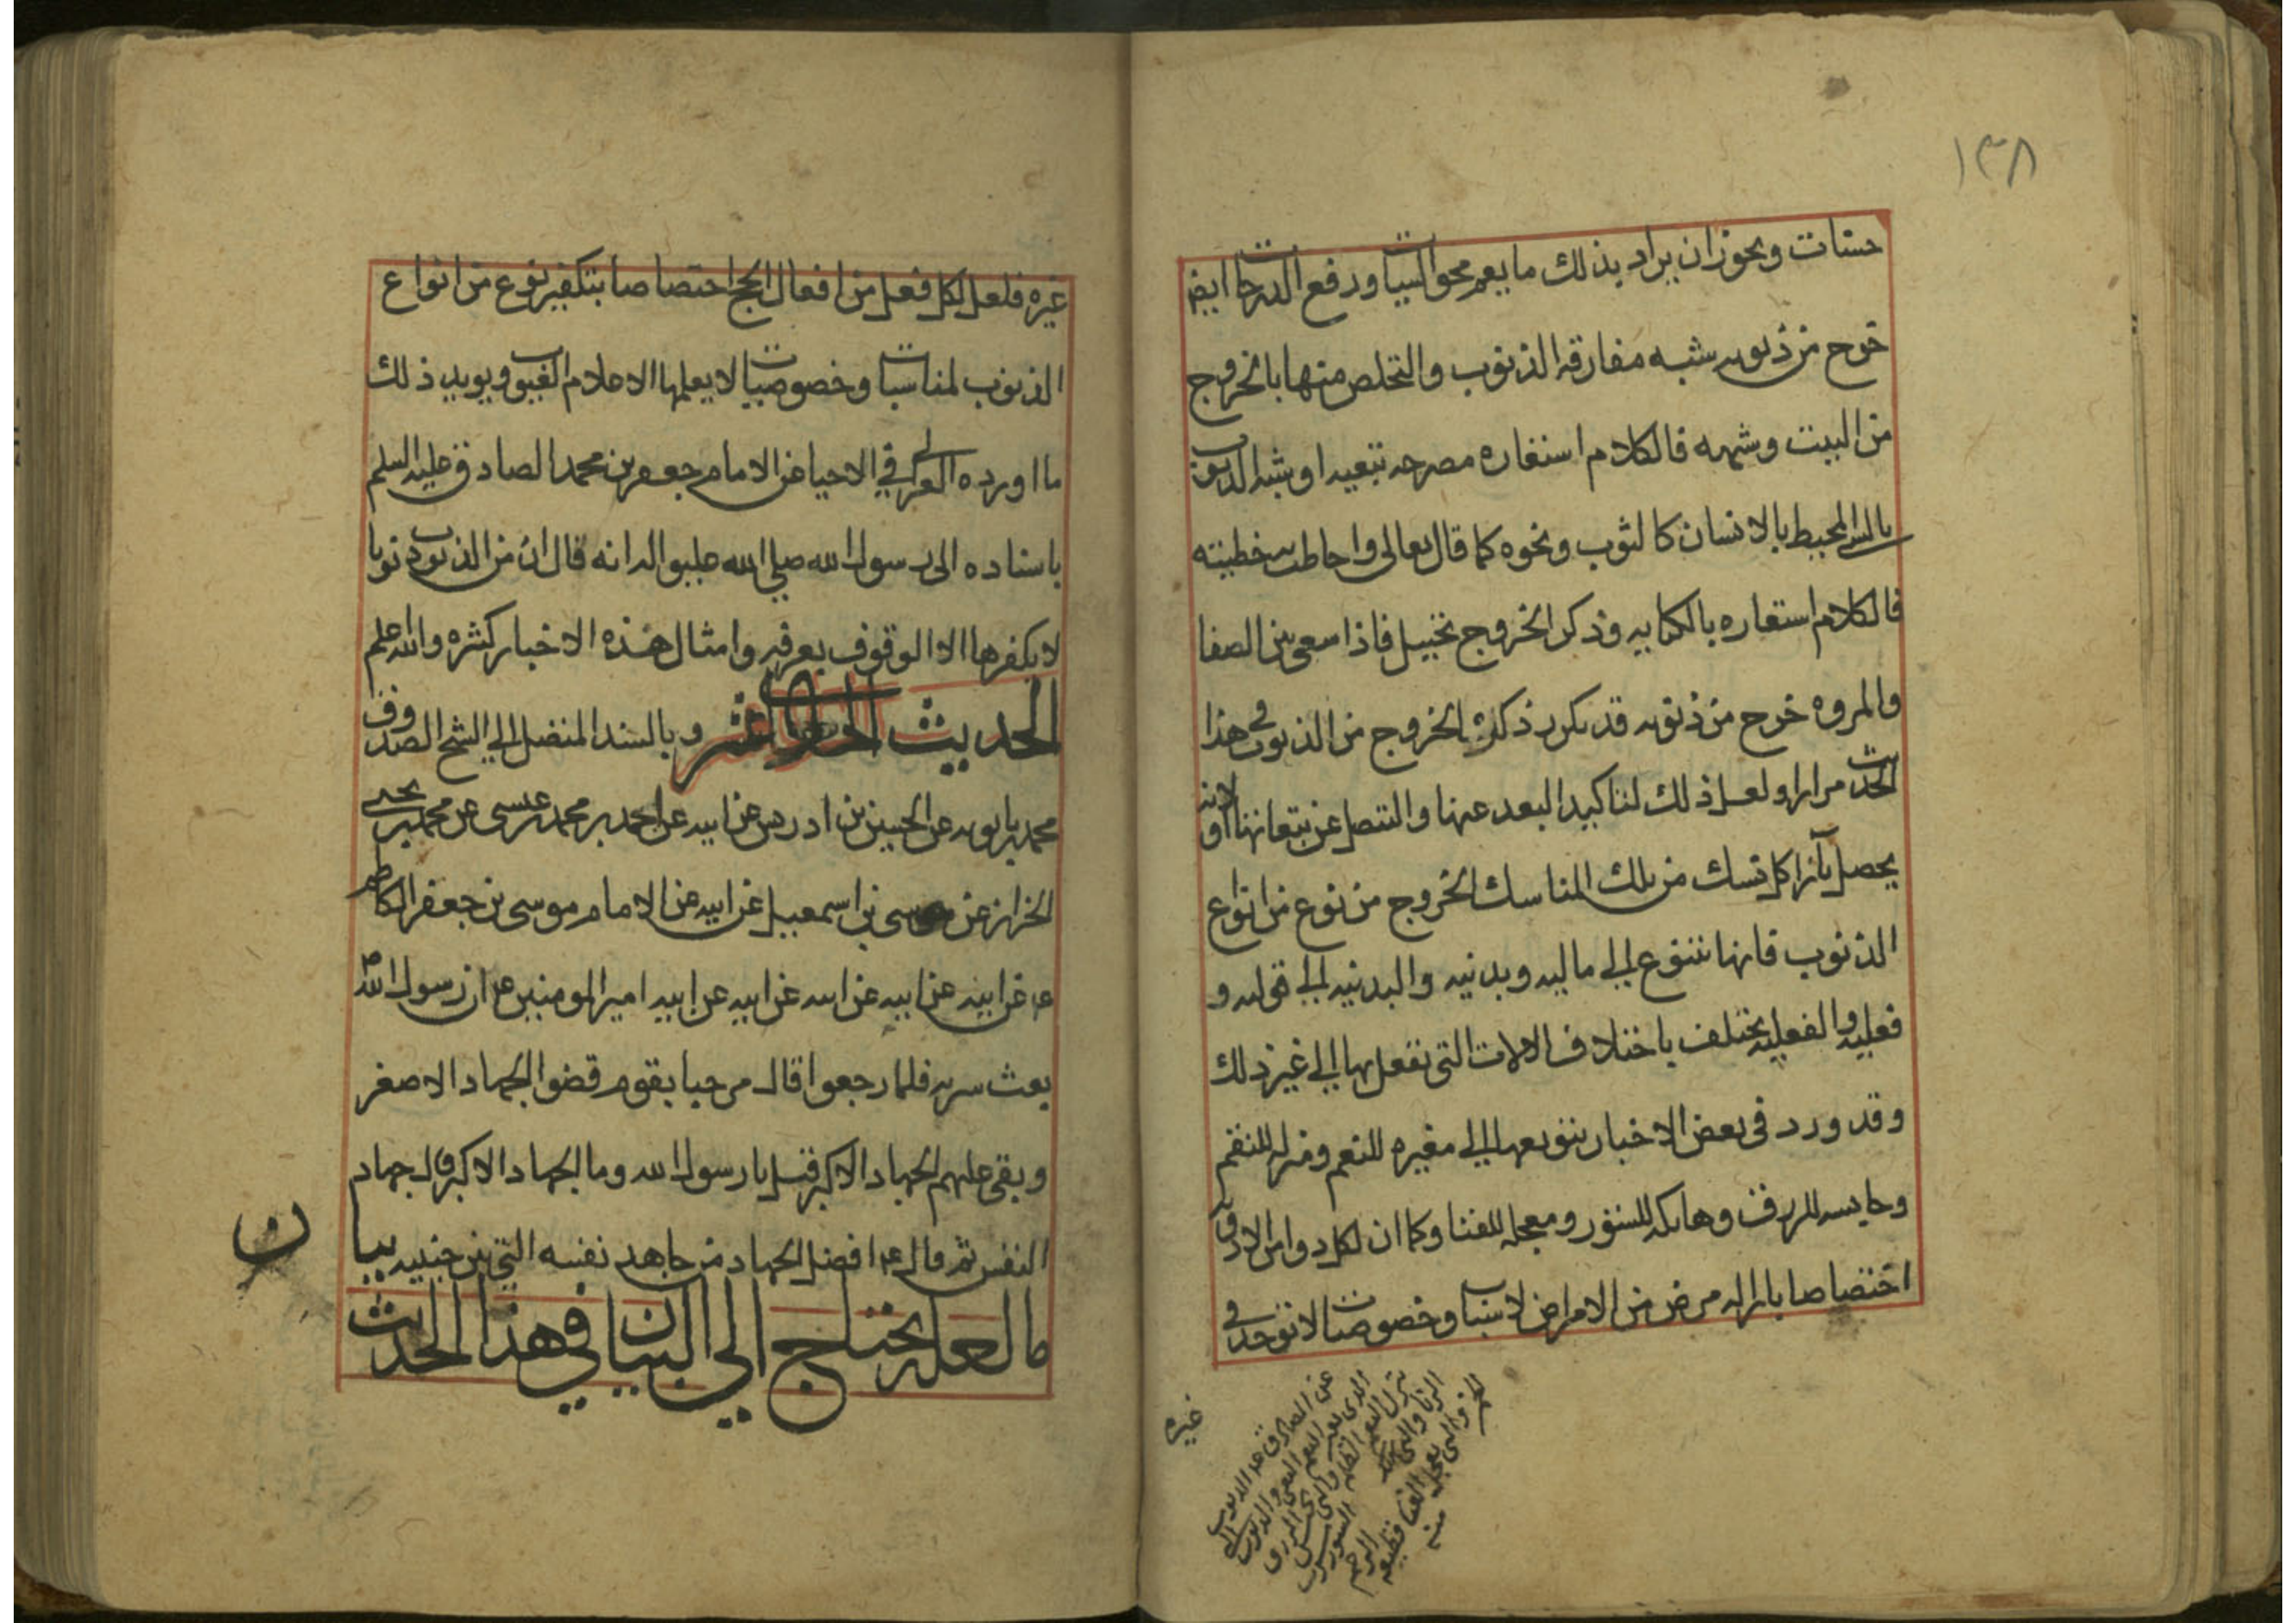 ١٣٨
حسنات ويجوز ان يراد بذلك ما يعم محو السيات ورفع الدرجات ايض
خرج من ذنوبه شبه مفارقه الذنوب والتخلص منها بالخروج
من البيت وشبهه فالكلام استعاره مصرحه تبعيه او شبه الذنوب
بالشي المحيط بالانسان كالثوب ونحوه كما قال تعالى واحاطت به خطيئته
فالكلام استعاره بالكنايه وذكر الخروج تخييل فاذا سعى بين الصفا
والمروه خرج من ذنوبه قد تكرر ذكر الخروج من الذنوب في هذا
الحديث مرارا ولعل ذلك لتاكيد البعد عنها والتنصل من تبعاتها او لانه
يحصل بآزا كل نسك من تلك المناسك الخروج من نوع من انواع
الذنوب فانها تتنوع الى ماليه وبدنيه والبدنيه الى قوليه و
فعليه والفعليه يختلف باختلاف الالات التي تفعل بها الى غير ذلك
وقد ورد في بعض الاخبار تنوعها الى مغيره للنعم ومنزله للنقم
وحابسه للرزق وهاتكه للستور ومعجله للفنا وكما ان لكل دوا من الادويه
اختصاصا بازاله مرض من الامراض لاسباب وخصوصيات لا توجد في
غيره
عن الصادق ع الذنوب
التي تغير النعم البغي والذنوب التي
تنزل النقم الظلم والتي تحبس الرزق
الزنا والتي تهتك الستور شرب
الخمر والتي تعجل الفنا قطيعه الرحم
منه
غيره فلعل لكل فعل من افعال الحج اختصاصا بتكفير نوع من انواع
الذنوب لمناسبات وخصوصيات لا يعلمها الا علام الغيوب ويويد ذلك
ما اورده الغزالي في الاحيا عن الامام جعفر بن محمد الصادق عليه السلم
باسناده الى رسول الله صلى الله عليه واله انه قال ان من الذنوب ذنوبا
لا يكفرها الا الوقوف بعرفه وامثال هذه الاخبار كثيره والله اعلم
الحديث الحادي عشر وبالسند المتصل الى الشيخ الصدوق
محمد بن بابويه عن الحسين بن ادريس عن ابيه عن احمد بن محمد بن عيسى عن محمد بن يحيى
الخزاز عن موسى بن اسمعيل عن ابيه عن الامام موسى بن جعفر الكاظم
ع عن ابيه عن ابيه عن ابيه عن ابيه عن ابيه امير المومنين ع ان رسول الله ص
بعث سريه فلما رجعوا قال مرحبا بقوم قضوا الجهاد الاصغر
وبقى عليهم الجهاد الاكبر قيل يا رسول الله وما الجهاد الاكبر قال جهاد
النفس ثم قال ع افضل الجهاد من جاهد نفسه التي بين جنبيه بيان
ما لعله يحتاج الى البيان في هذا الحديث